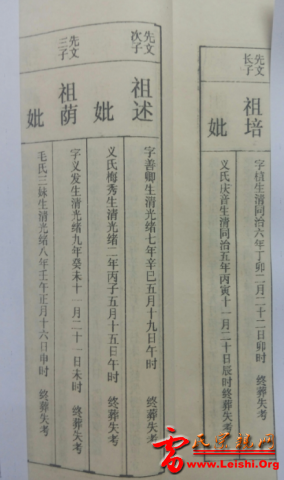 先文长子
祖培
字植生清同治六年丁卯二月二十二日卯时 终葬失考
妣
义氏庆音生清同治五年丙寅十一月二十日辰时终葬失考
先文次子
祖述
字善卿生清光绪七年辛巳五月十九日午时 终葬失考
妣
义氏梅秀生清光绪二年丙子五月十五日午时 终葬失考
先文三子
祖荫
字义发生清光绪九年癸未十一月二十一日未时 终葬失考
妣
毛氏三妹生清光绪八年壬午正月十六日申时 终葬失考
雷氏宗亲网
www.Leishi.Org